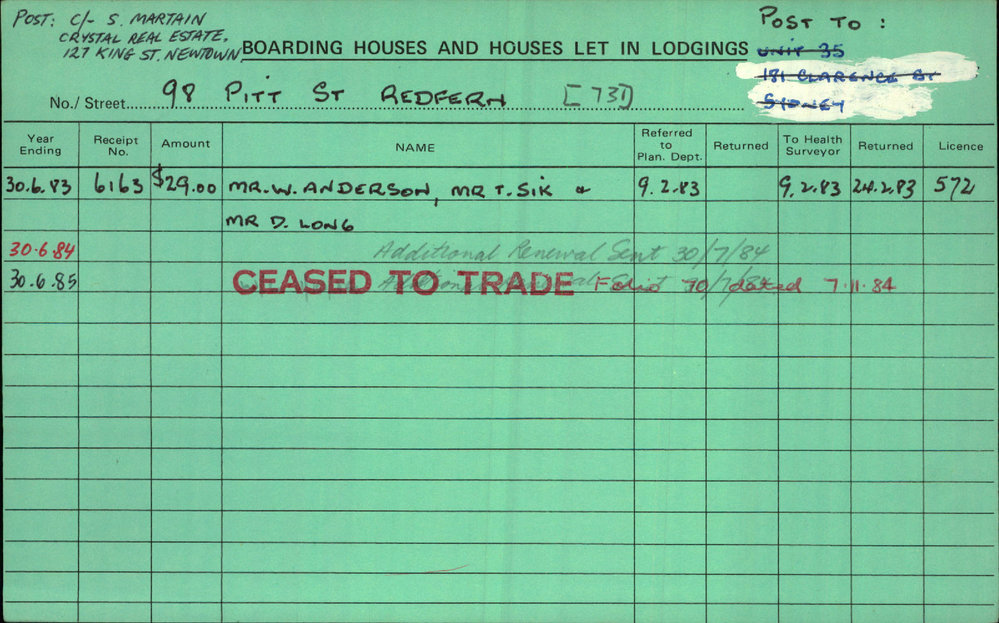 POST: C/- S. MARTAIN
CRYSTAL REAL ESTATE.
127 KING ST. NEWTOWN
POST TO :
UNIT 35
181 CLARENCE ST
SYDNEY
BOARDING HOUSES AND HOUSES LET IN LODGINGS
No./Street 98 PITT ST REDFERN [731]
Year Ending Receipt No. Amount NAME Referred to Plan. Dept. Returned To Health Surveyor Returned Licence
30.6.83 6163 $29.00 MR. W. ANDERSON, MR T. SIK & 9.2.83 9.2.83 24.2.83 572
MR D. LONG
30.6.84 Additional Renewal Sent 30/7/84
30.6.85 CEASED TO TRADE Folio dated 7.11.84